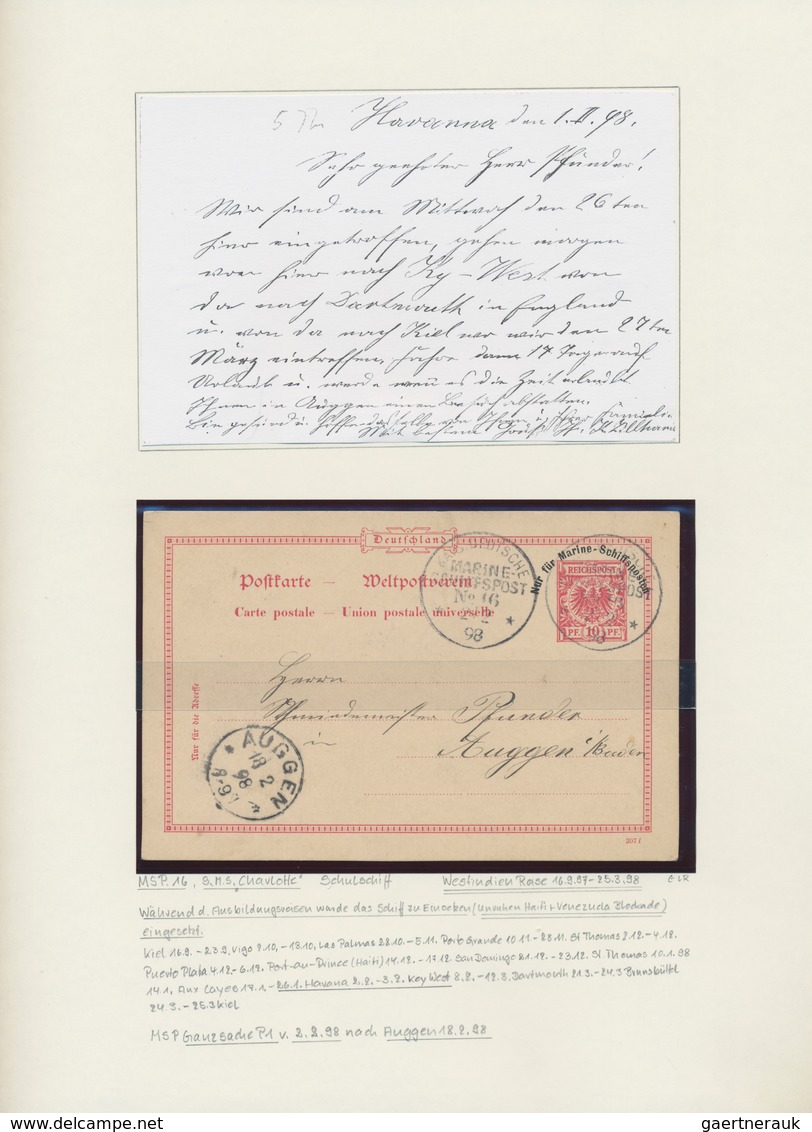 Havanna den 1.II.98.
Sehr geehrter Herr Pfunder!
Wir sind am Mittwoch den 26ten
hier eingetroffen, gehen morgen
von hier nach Ky-West von
da nach Dartmouth in England
u. von da nach Kiel wo wir den 27ten
März eintreffen, fahre dann 17 Tage auf
Urlaub u. werde wenn es die Zeit erlaubt
Ihnen in Auggen einen Besuch abstatten.
Bin gesund u. hoffe dasselbe von Ihnen u. Ihrer Familie
Mit bestem Gruß
Deutschland
KAIS. DEUTSCHE
MARINE-
SCHIFFSPOST
No 16
2 2
98
Nur für Marine-Schiffsposten
REICHSPOST
PF. 10 PF.
98
Postkarte — Weltpostverein
Carte postale — Union postale universelle
Nur für die Adresse
Herrn
Schmiedemeister Pfunder
in
Auggen i/Baden
AUGGEN
18 2
98
8-9 V.
297 f
MSP. 16 "S.M.S. Charlotte" Schulschiff Westindien Reise 16.9.97-25.3.98
Während d. Ausbildungsreisen wurde das Schiff zu Einsätzen (Unruhen Haiti + Venezuela Blockade)
eingesetzt.
Kiel 16.9.-23.9. Vigo 9.10,-13.10, Las Palmas 28.10.-5.11. Porto Grande 10.11-23.11. St Thomas 2.12.-4.12.
Puerto Plata 4.12.-6.12. Port-au-Prince (Haiti) 14.12.-17.12. San Domingo 21.12.-23.12. St Thomas 10.1.98
14.1, Aux Cayes 17.1.-26.1. Havana 2.2.-3.2. Key West 8.2.-12.3. Dartmouth 21.3.-24.3 Brunsbüttel
24.3.-25.3 Kiel
MSP Ganzsache P1 v. 2.2.98 nach Auggen 18.2.98
gaertnerauk